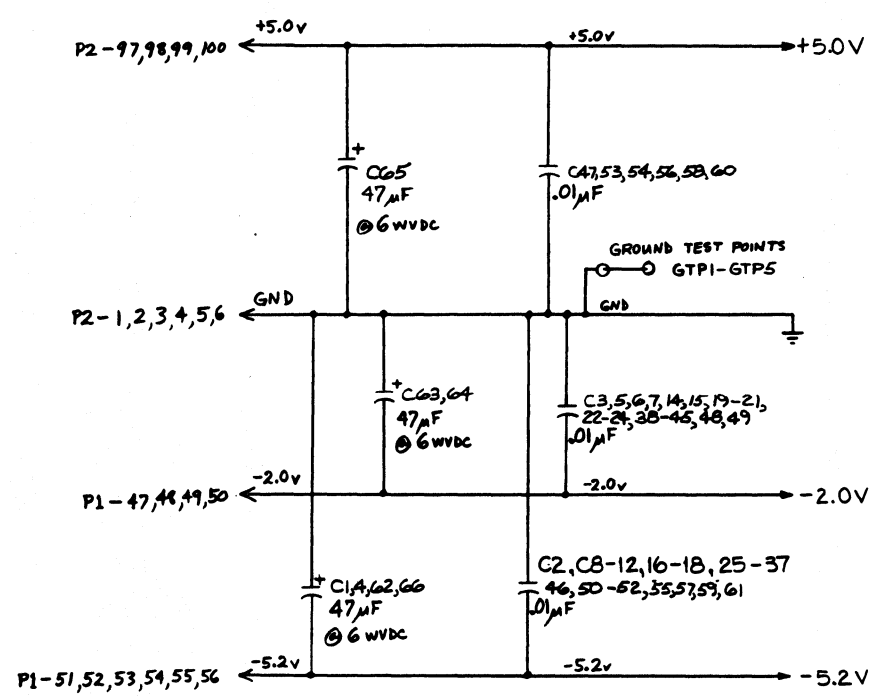 +5.0v
P2-97,98,99,100
+5.0v
+5.0V
+
C65
47μF
@ 6 WVDC
C47,53,54,56,58,60
.01μF
GROUND TEST POINTS
GTP1-GTP5
GND
P2-1,2,3,4,5,6
GND
+
C63,64
47μF
@ 6 WVDC
C3,5,6,7,14,15,19-21,
22-24,38-45,48,49
.01μF
-2.0v
P1-47,48,49,50
-2.0v
-2.0V
+
C1,4,62,66
47μF
@ 6 WVDC
C2,C8-12,16-18,25-37
46,50-52,55,57,59,61
.01μF
-5.2v
P1-51,52,53,54,55,56
-5.2v
-5.2V